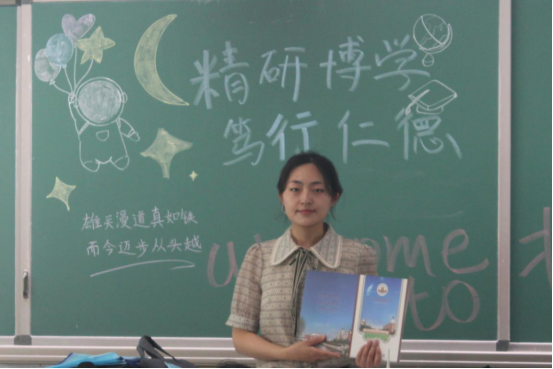 精研博学
笃行仁德
雄关漫道真如铁
而今迈步从头越
welcome
to